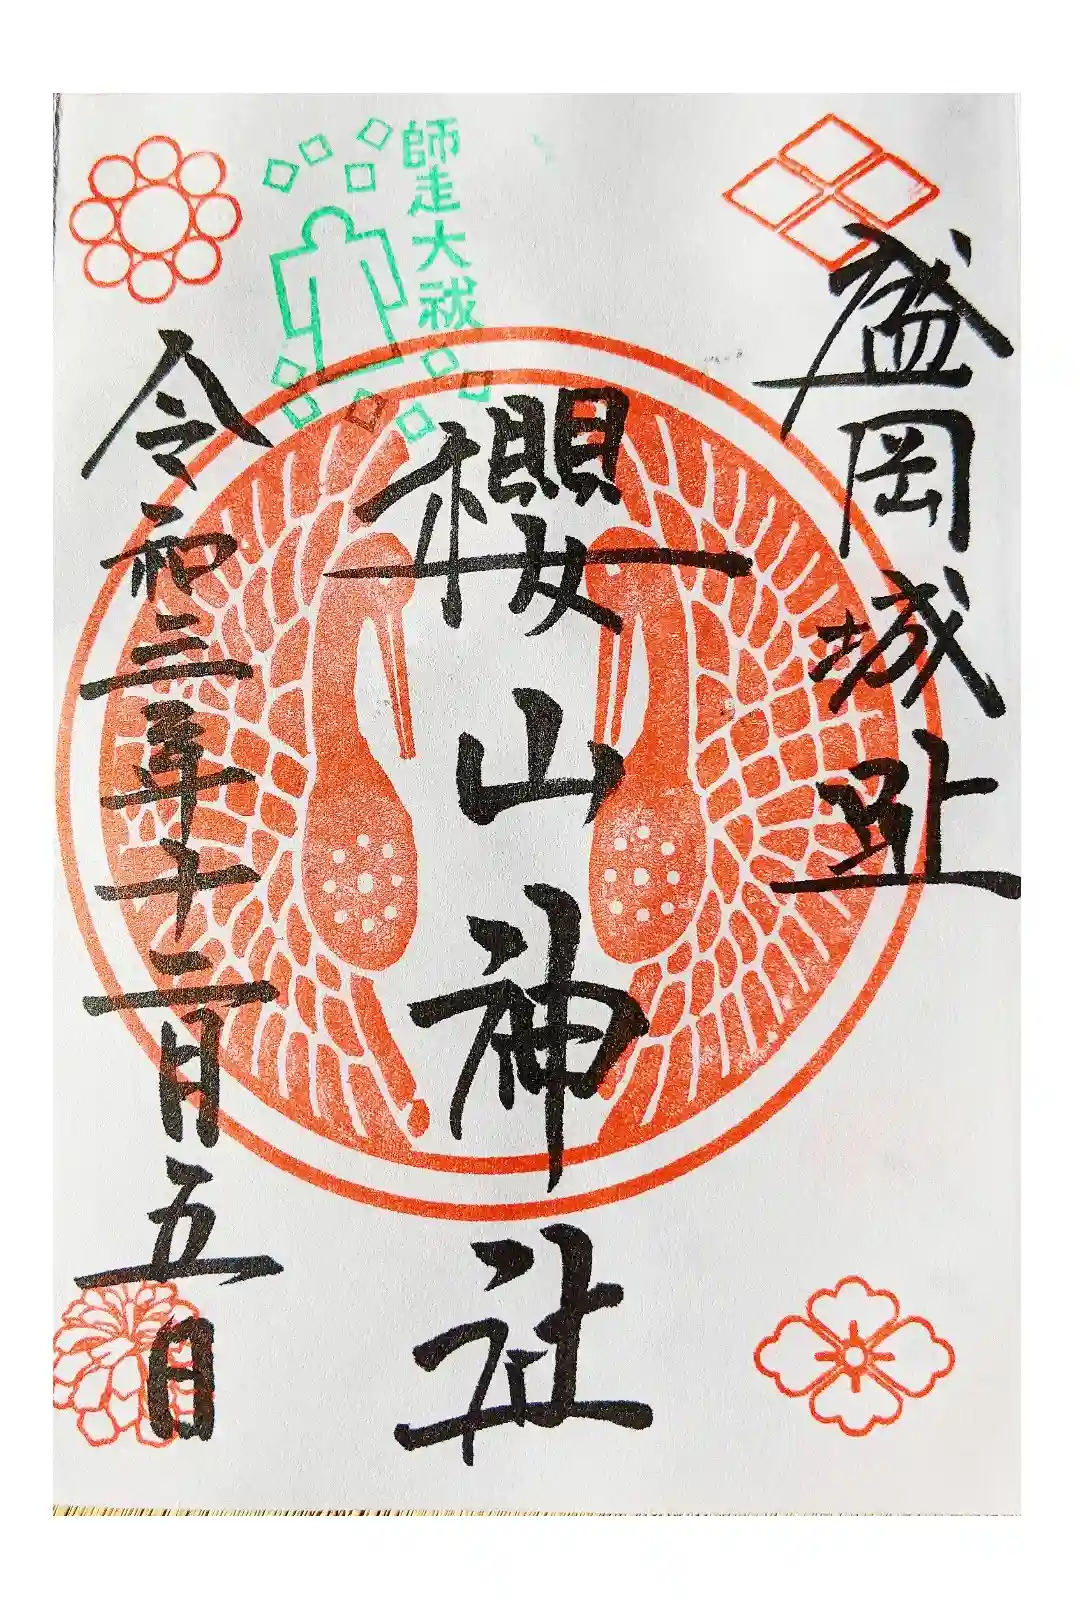 盛岡城址
師走大祓
櫻山神社
令和三年十二月五日